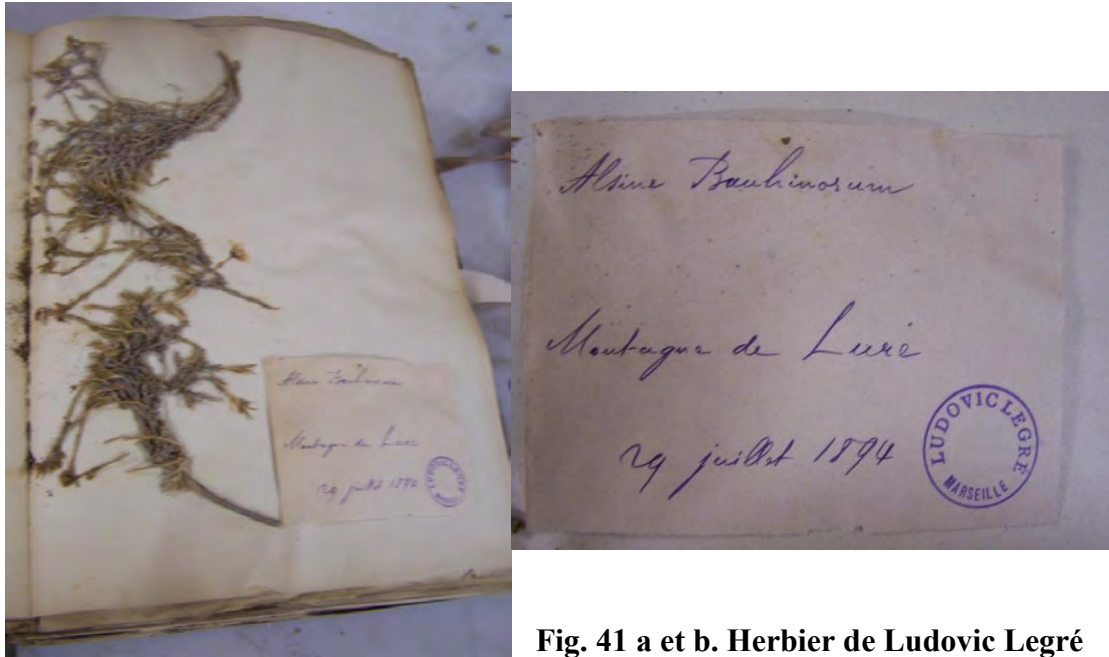 Alsine Bauhinorum
Montagne de Lure
29 juillet 1894
LUDOVIC LEGRÉ
MARSEILLE
Alsine Bauhinorum
Montagne de Lure
29 juillet 1894
LUDOVIC LEGRÉ
MARSEILLE
Fig. 41 a et b. Herbier de Ludovic Legré